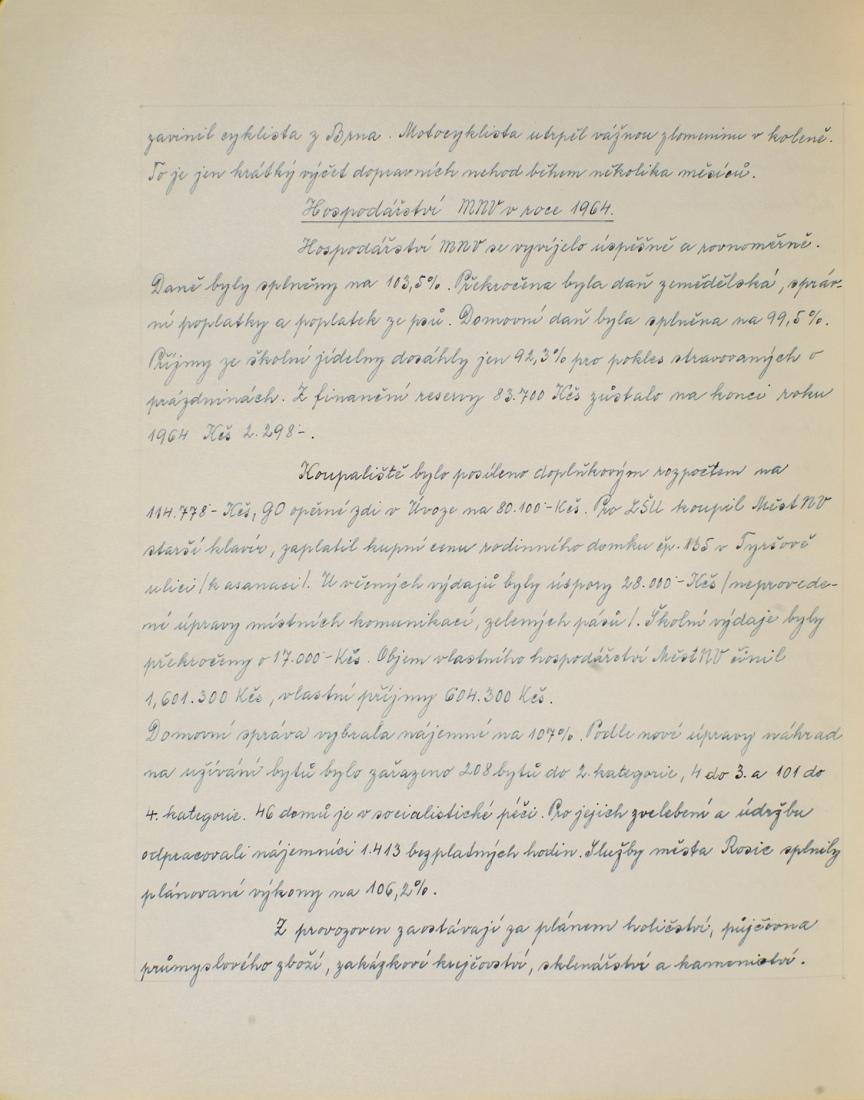 zavinil cyklista z Brna. Motocyklista utrpěl vážnou zlomeninu v koleně.
To je jen krátký výčet dopravních nehod během několika měsíců.
Hospodářství MNV v roce 1964.
Hospodářství MNV se vyvíjelo úspěšně a rovnoměrně.
Daně byly splněny na 103,5%. Překročena byla daň zemědělská, správ-
ní poplatky a poplatek ze psů. Domovní daň byla splněna na 99,5%.
Příjmy ze školní jídelny dosáhly jen 92,3% pro pokles stravovaných o
prázdninách. Z finanční reservy 83.700 Kčs zůstalo na konci roku
1964 Kčs 2.298-.
Koupaliště bylo posíleno doplňkovým rozpočtem na
114.778- Kčs, GO opěrní zdi v Úvoze na 80.100-Kčs. Pro LŠU koupil MěstNV
starší klavír, zaplatil kupní cenu rodinného domku čp. 135 v Tyršově
ulici /k asanaci/. U věcných výdajů byly úspory 28.000-Kčs /neprovede-
ní úpravy místních komunikací, zelených pásů/. Školní výdaje byly
překročeny o 17.000-Kčs. Objem vlastního hospodářství MěstNV činil
1,601.300 Kčs, vlastní příjmy 604.300 Kčs.
Domovní správa vybrala nájemné na 107%. Podle nové úpravy náhrad
na užívání bytů bylo zařazeno 208 bytů do 2. kategorie, 4 do 3. a 101 do
4. kategorie. 46 domů je v socialistické péči. Pro jejich zvelebení a údržbu
odpracovali nájemníci 1.413 bezplatných hodin. Služby města Rosic splnily
plánované výkony na 106,2%.
Z provozoven zaostávají za plánem holičství, půjčovna
průmyslového zboží, zakázkové krejčovství, sklenářství a kamenictví.